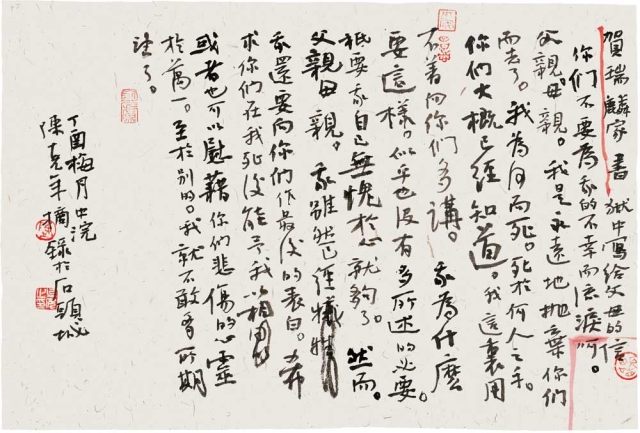 賀瑞麟家書 獄中寫給父母的信
你們不要為我的不幸而流淚啊。
父親母親。我是永遠地拋棄你們
而去了。我為何而死。死於何人之手。
你們大概已經知道。我這裏用
不着向你們多講。我為什麼
要這樣。似乎也沒有多所述的必要。
祇要我自己無愧於心就夠了。然而。
父親母親。我雖然已經犧牲
我還要向你們作最後的表白。希
求你們在我死後能予我以相
或者也可以慰藉你們悲傷的心靈
於萬一。至於別的。我就不敢有所期
望了。
丁酉梅月中浣
陳克年摘錄於石頭城